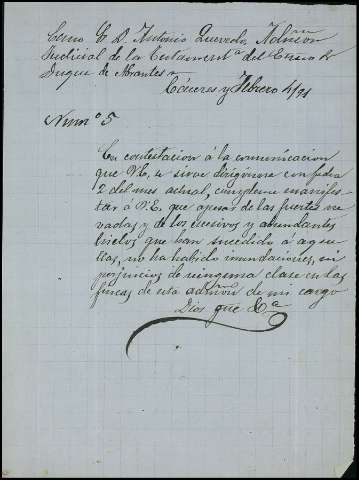 Excmo Sr D. Antonio Quevedo, Admon
Judicial de la Testamenta del Excmo Sr
Duque de Abrantes
Cáceres y Febrero 4/91
Numº 5
En contestacion á la comunicacion
que V.E. se sirve dirigirme con fecha
2 del mes actual, cumpleme manifes-
tar á V.E. que apesar de las fuertes ne-
vadas y de los excesivos y abundantes
hielos que han sucedido á aque-
llas, no ha habido inundaciones, ni
perjuicios de ninguna clase en las
fincas de esta admon de mi cargo
Dios gue &a